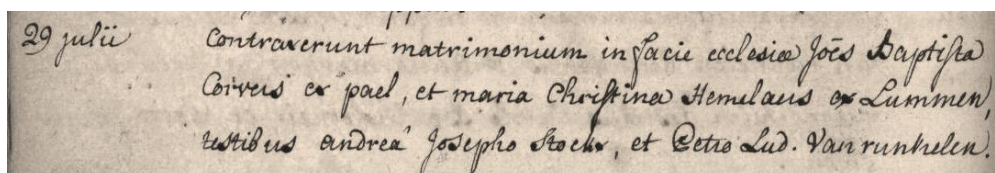 29 julii contraxerunt matrimonium in facie ecclesiæ Joēs Baptista
Corvers ex pael, et maria Christina Hemelaers ex Lummen,
testibus andreâ Josepho Stockx, et Petro Lud. Van runkelen.